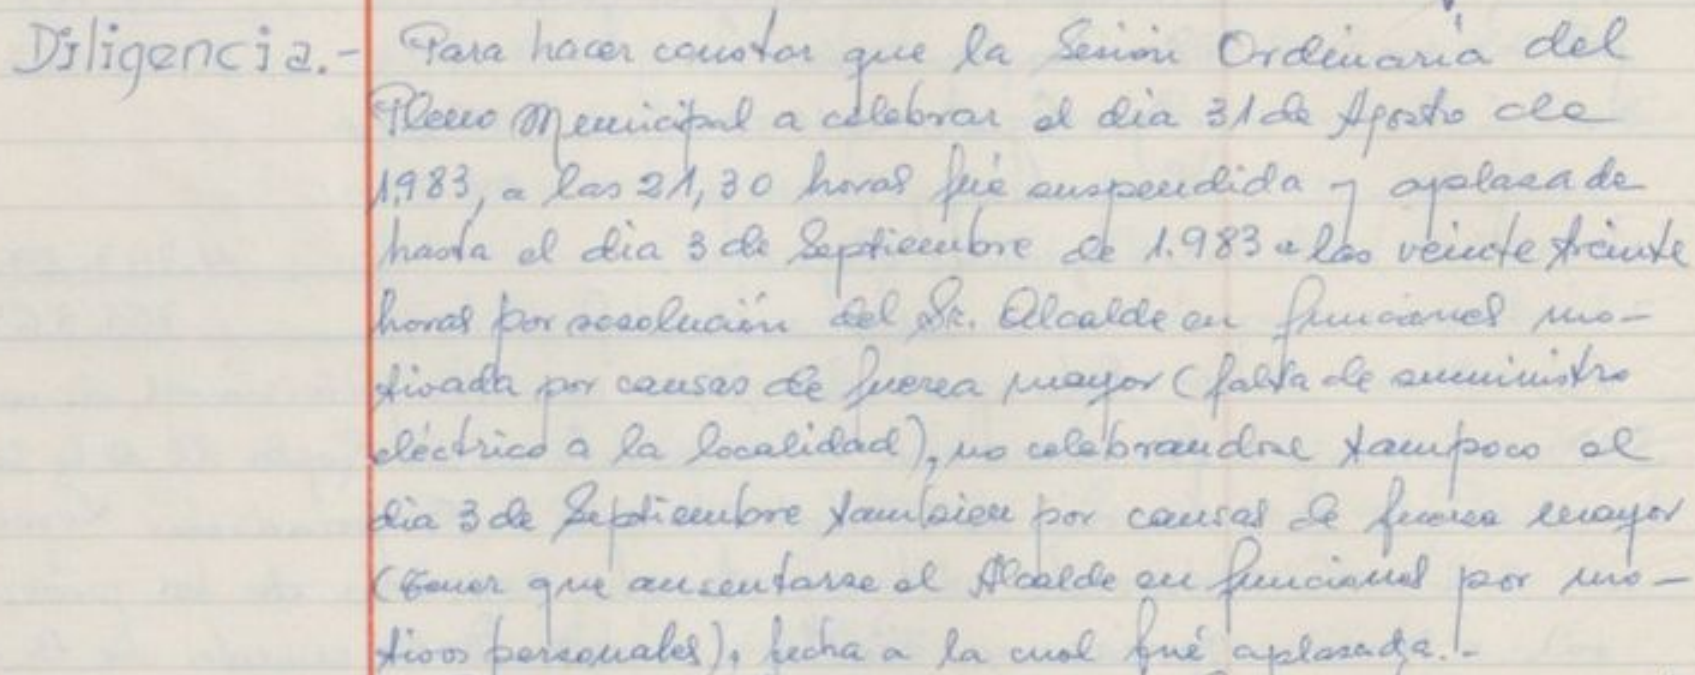 Diligencia.- Para hacer constar que la Sesión Ordinaria del
Pleno Municipal a celebrar el dia 31 de Agosto de
1.983, a las 21,30 horas fué suspendida y aplazada
hasta el dia 3 de Septiembre de 1.983 a las veinte treinte
horas por resolución del Sr. Alcalde en funciones mo-
tivada por causas de fuerza mayor (falta de suministro
eléctrico a la localidad), no celebrandose tampoco el
dia 3 de Septiembre tambien por causas de fuerza mayor
(tener que ausentarse el Alcalde en funciones por mo-
tivos personales), fecha a la cual fué aplazada.-